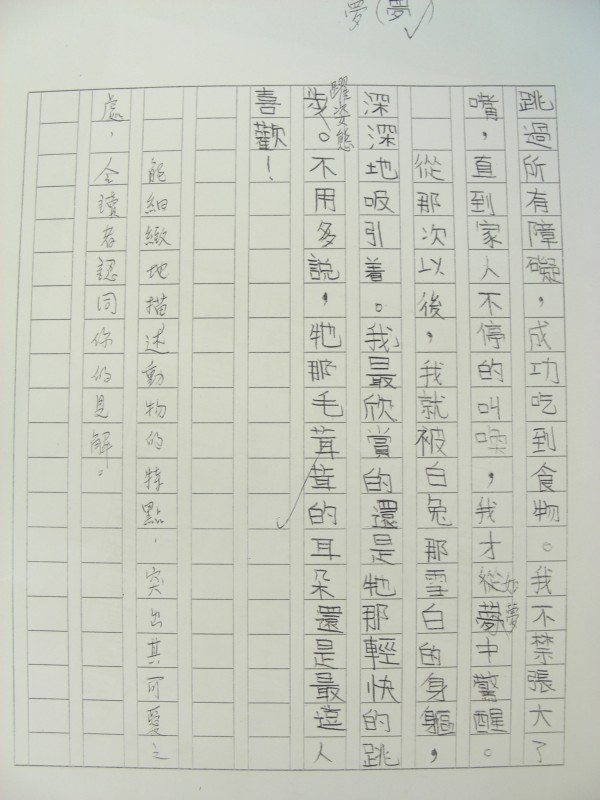 夢(夢)
跳過所有障礙,成功吃到食物。我不禁張大了
嘴,直到家人不停的叫喚,我才從如夢夢中驚醒。
從那次以後,我就被白兔那雪白的身軀,
深深地吸引着。我最欣賞的還是牠那輕快的跳
躍姿態
步。不用多說,牠那毛茸茸的耳朵還是最遠人
喜歡!
能細緻地描述動物的特點,突出其可愛之
處,令讀者認同你的見解。